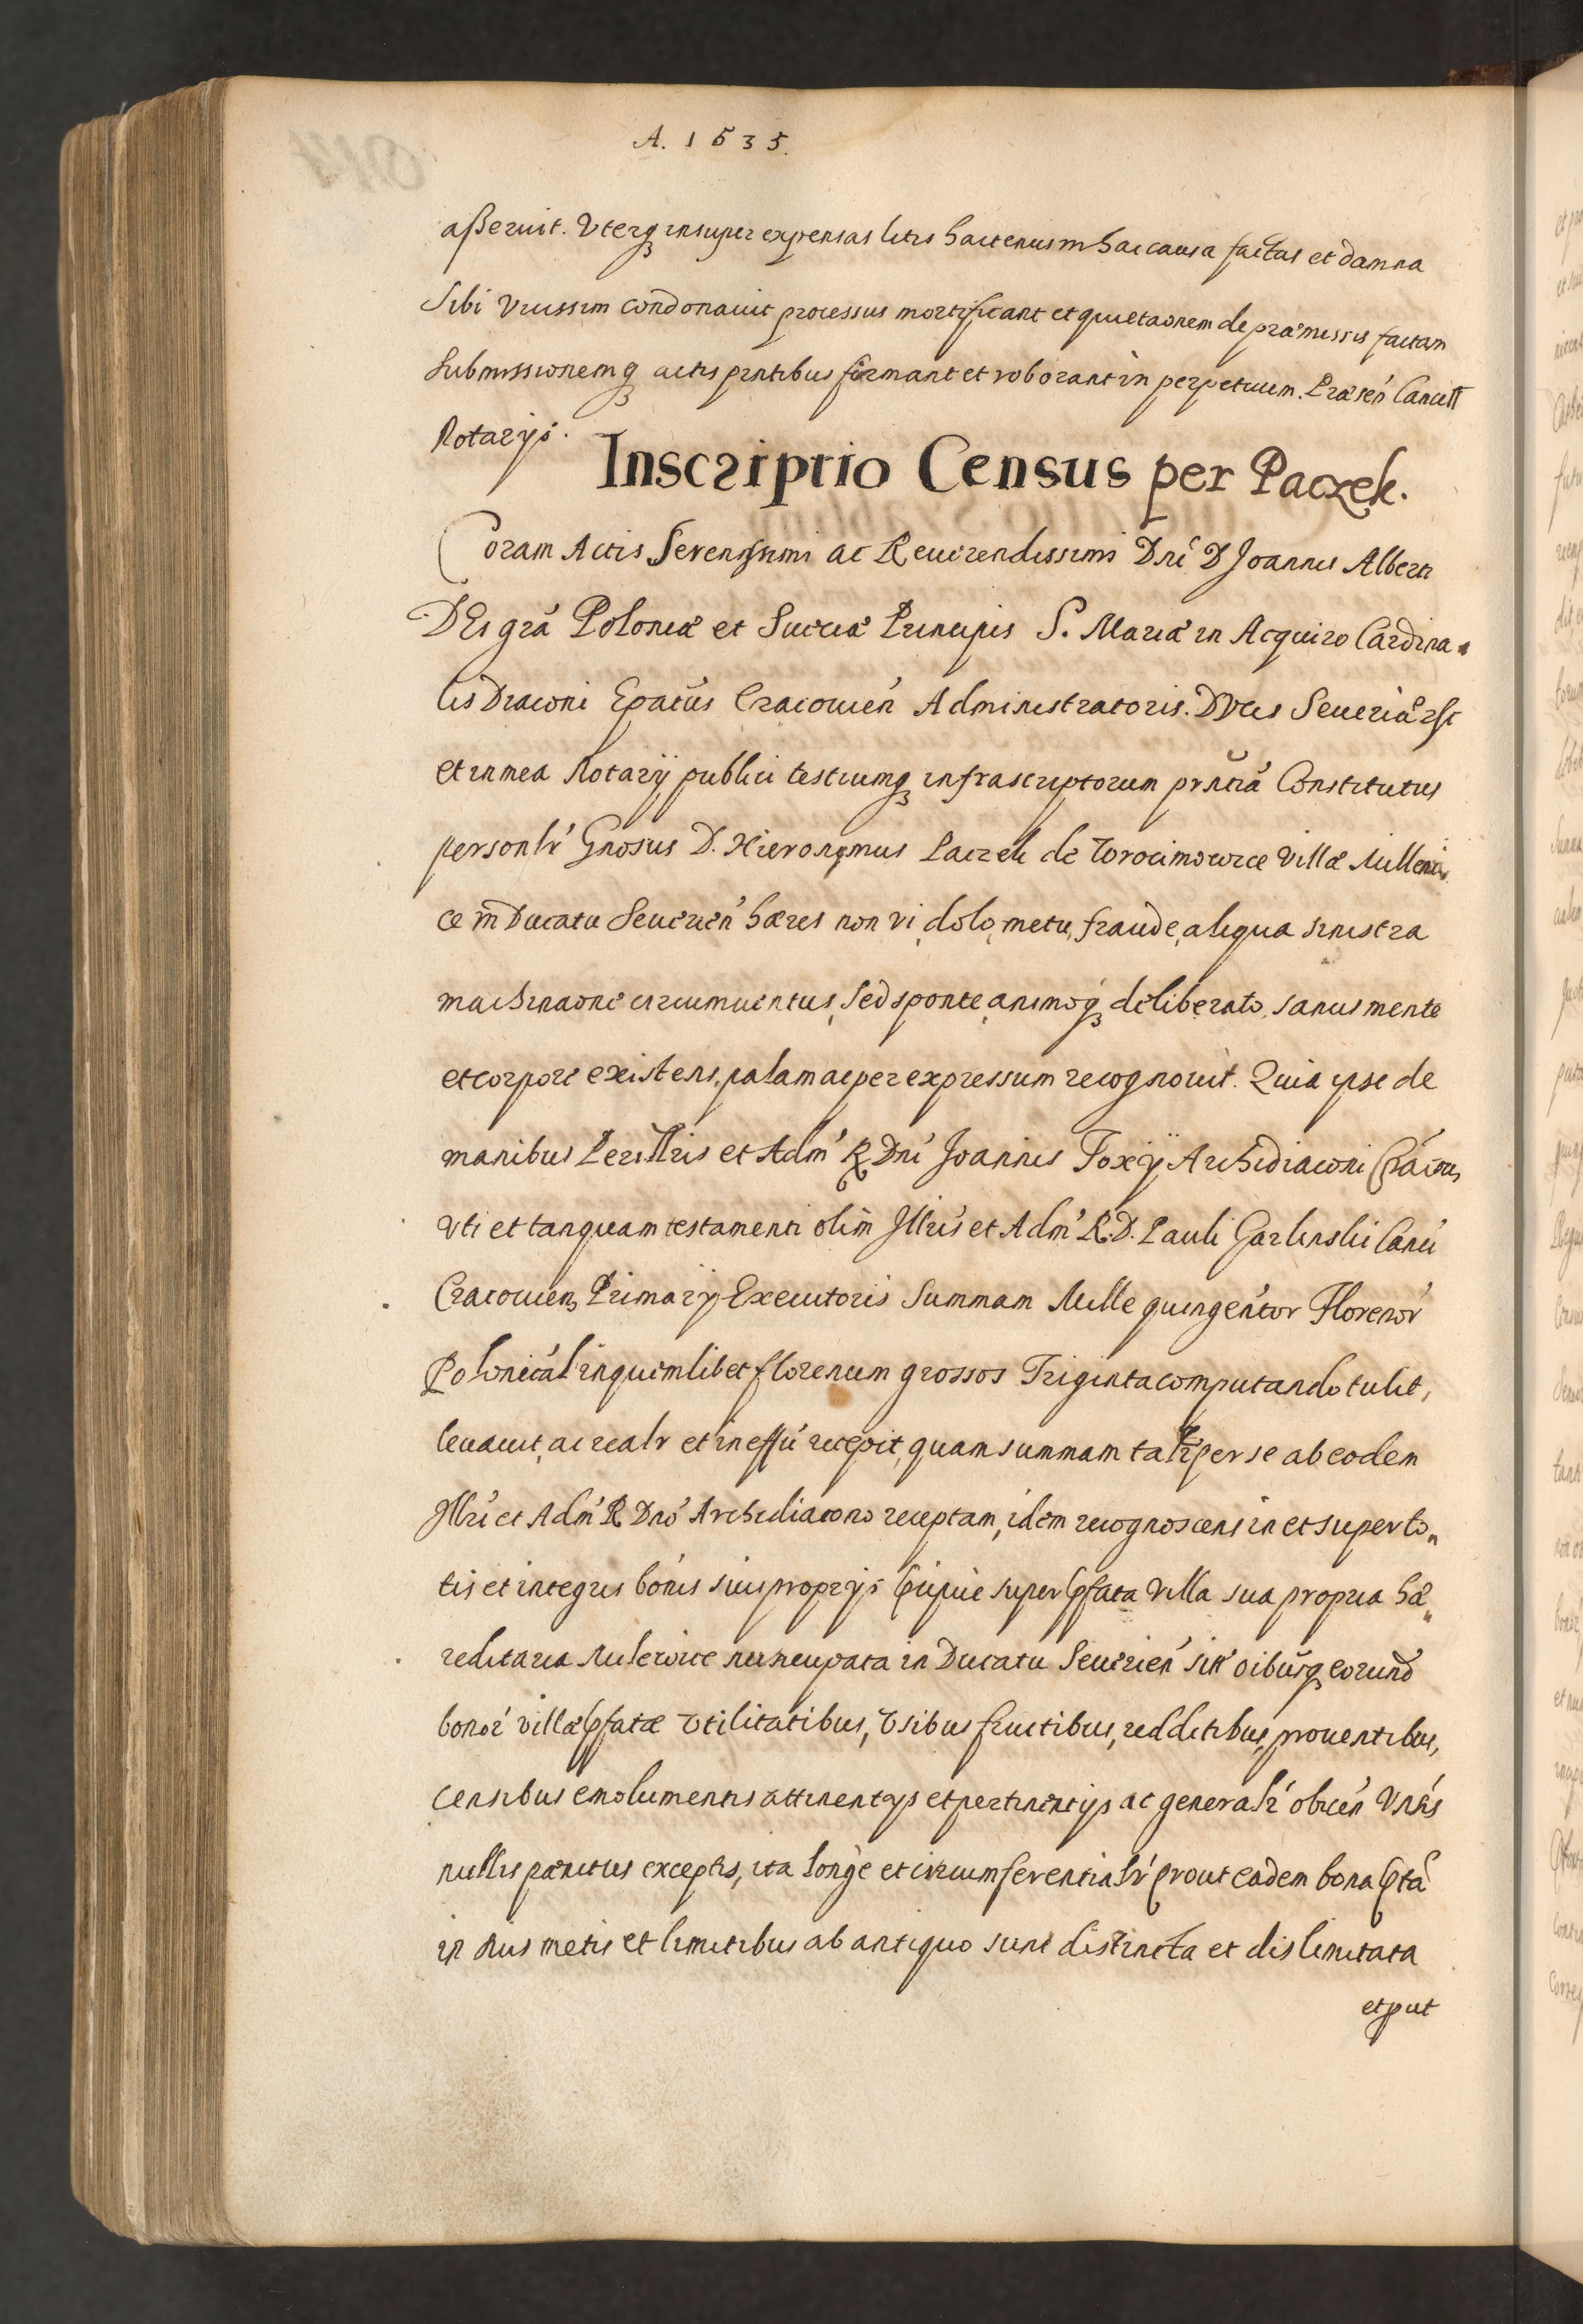 A. 1635.
aßeruit. Vterq insuper expensas litis hactenus in hac causa factas et damna
Sibi vicissim condonauit processus mortificant et quietaonem de præmissis factam
Submissionemq actis pntibus firmant et roborant in perpetuum. Præsen Cancell
Notarys.
Inscriptio Census per Paczek.
Coram Actis Serenissimi ac Reuerendissimi Dni D Joannis Alberti
DEi grã Poloniæ et Sueciæ Principis S. Mariæ in Acquiro Cardina
lis Diaconi Epatus Cracouien Administratoris. DVcis Seueriæ &c
et in mea Notarÿ publici testiumq infrascriptorum prntia Constitutus
personlr Gnosus D. Hieronymus Paczek de Torocimowice Villæ Millewi
ce in Ducatu Seuerien hæres non vi, dolo, metu, fraude, aliqua sinistra
machinaone circumuentus, Sed sponte, animoq deliberato, sanus mente
et corpore existens, palam ac per expressum recognouit. Quia ipse de
manibus Perillris et Adm R Dni Joannis Foxÿ Archidiaconi Cracou,
vti et tanquam testamenti olim Jllris et Adm R. D. Pauli Garlinski Canci
Cracouien, Primarÿ Executoris Summam Mille quingentor Florenor
Polonical in quemlibet florenum grossos Triginta computando tulit,
leuauit, ac realr et in effu recepit, quam summam talr per se ab eodem
Jllri et Adm R Dno Archidiacono receptam, idem recognoscens in et super to„
tis et integris bonis suis proprys pcipue super pfata Villa sua propria hæ„
reditaria Milewice nuncupata in Ducatu Seuerien sitt oibusq eorund
bonor villæ pfatæ Vtilitatibus, Vsibus fructibus, redditibus, prouentibus,
censibus emolumentis attinentys et pertinentys ac generalr obuen Vnrs
nullis pænitus exceptis, ita longe et circumferentialr prout eadem bona pta
in suis metis et limitibus ab antiquo sunt distincta et dislimitata
et put